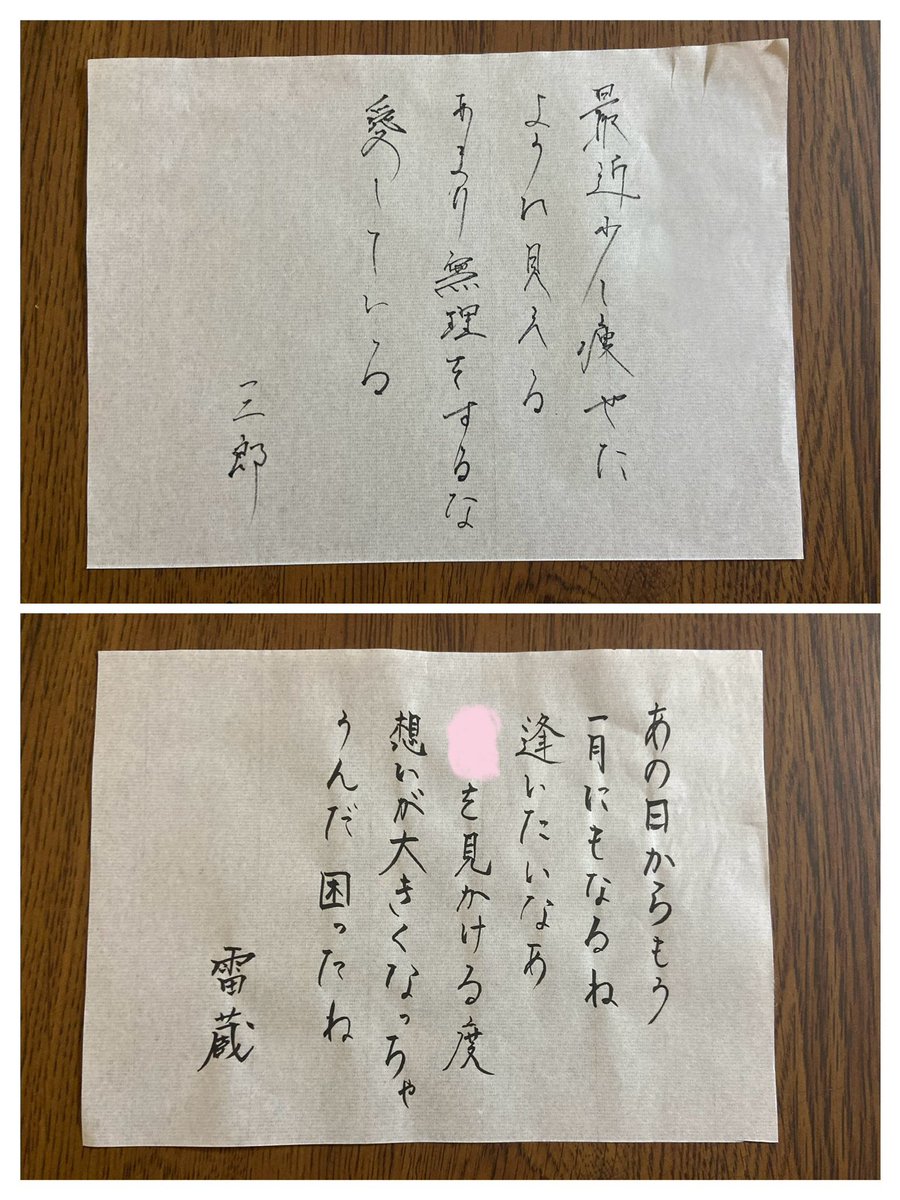 最近少し痩せた
ように見える
あまり無理をするな
愛している
三郎
あの日からもう
一月にもなるね
逢いたいなあ
を見かける度
想いが大きくなっちゃ
うんだ 困ったね
雷蔵